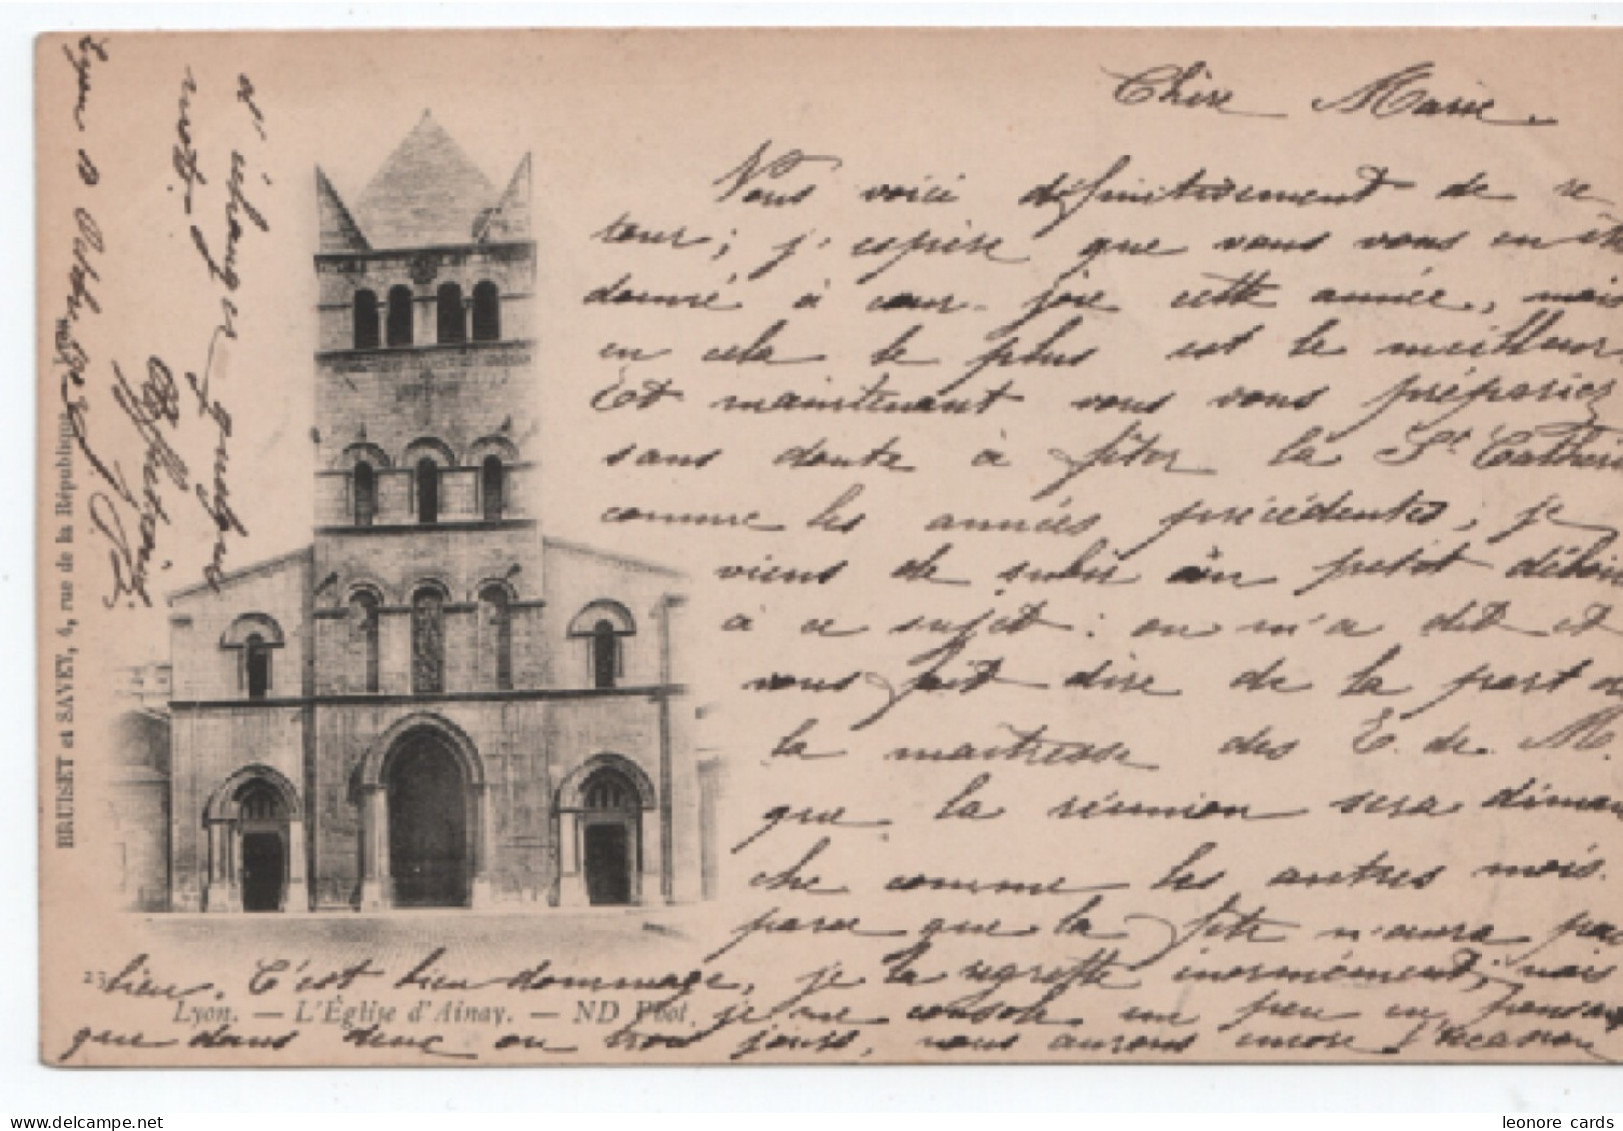 Chère Marie.
Vous voici définitivement de re-
tour; j'espère que vous vous en êtes
donné à cœur-joie cette année, mais
en cela le plus est le meilleur
Et maintenant vous vous préparez
sans doute à fêter la St Catherine
comme les années précédentes, je
viens de subir un petit déboire
à ce sujet: on m'a dit et
vous fait dire de la part de
la maîtresse des E. de M.
que la réunion sera diman
che comme les autres mois.
parce que la fête n'aura pas
lieu. C'est bien dommage, je la regrette énormément; mais
je me console un peu en pensant
que dans deux ou trois jours, nous aurons encore l'occasion
d'échanger quelques
mots.
Affectueux
Lyon
BRUISET et SAVEY, 4, rue de la République
23
Lyon. — L'Église d'Ainay. — ND Phot.
leonore cards